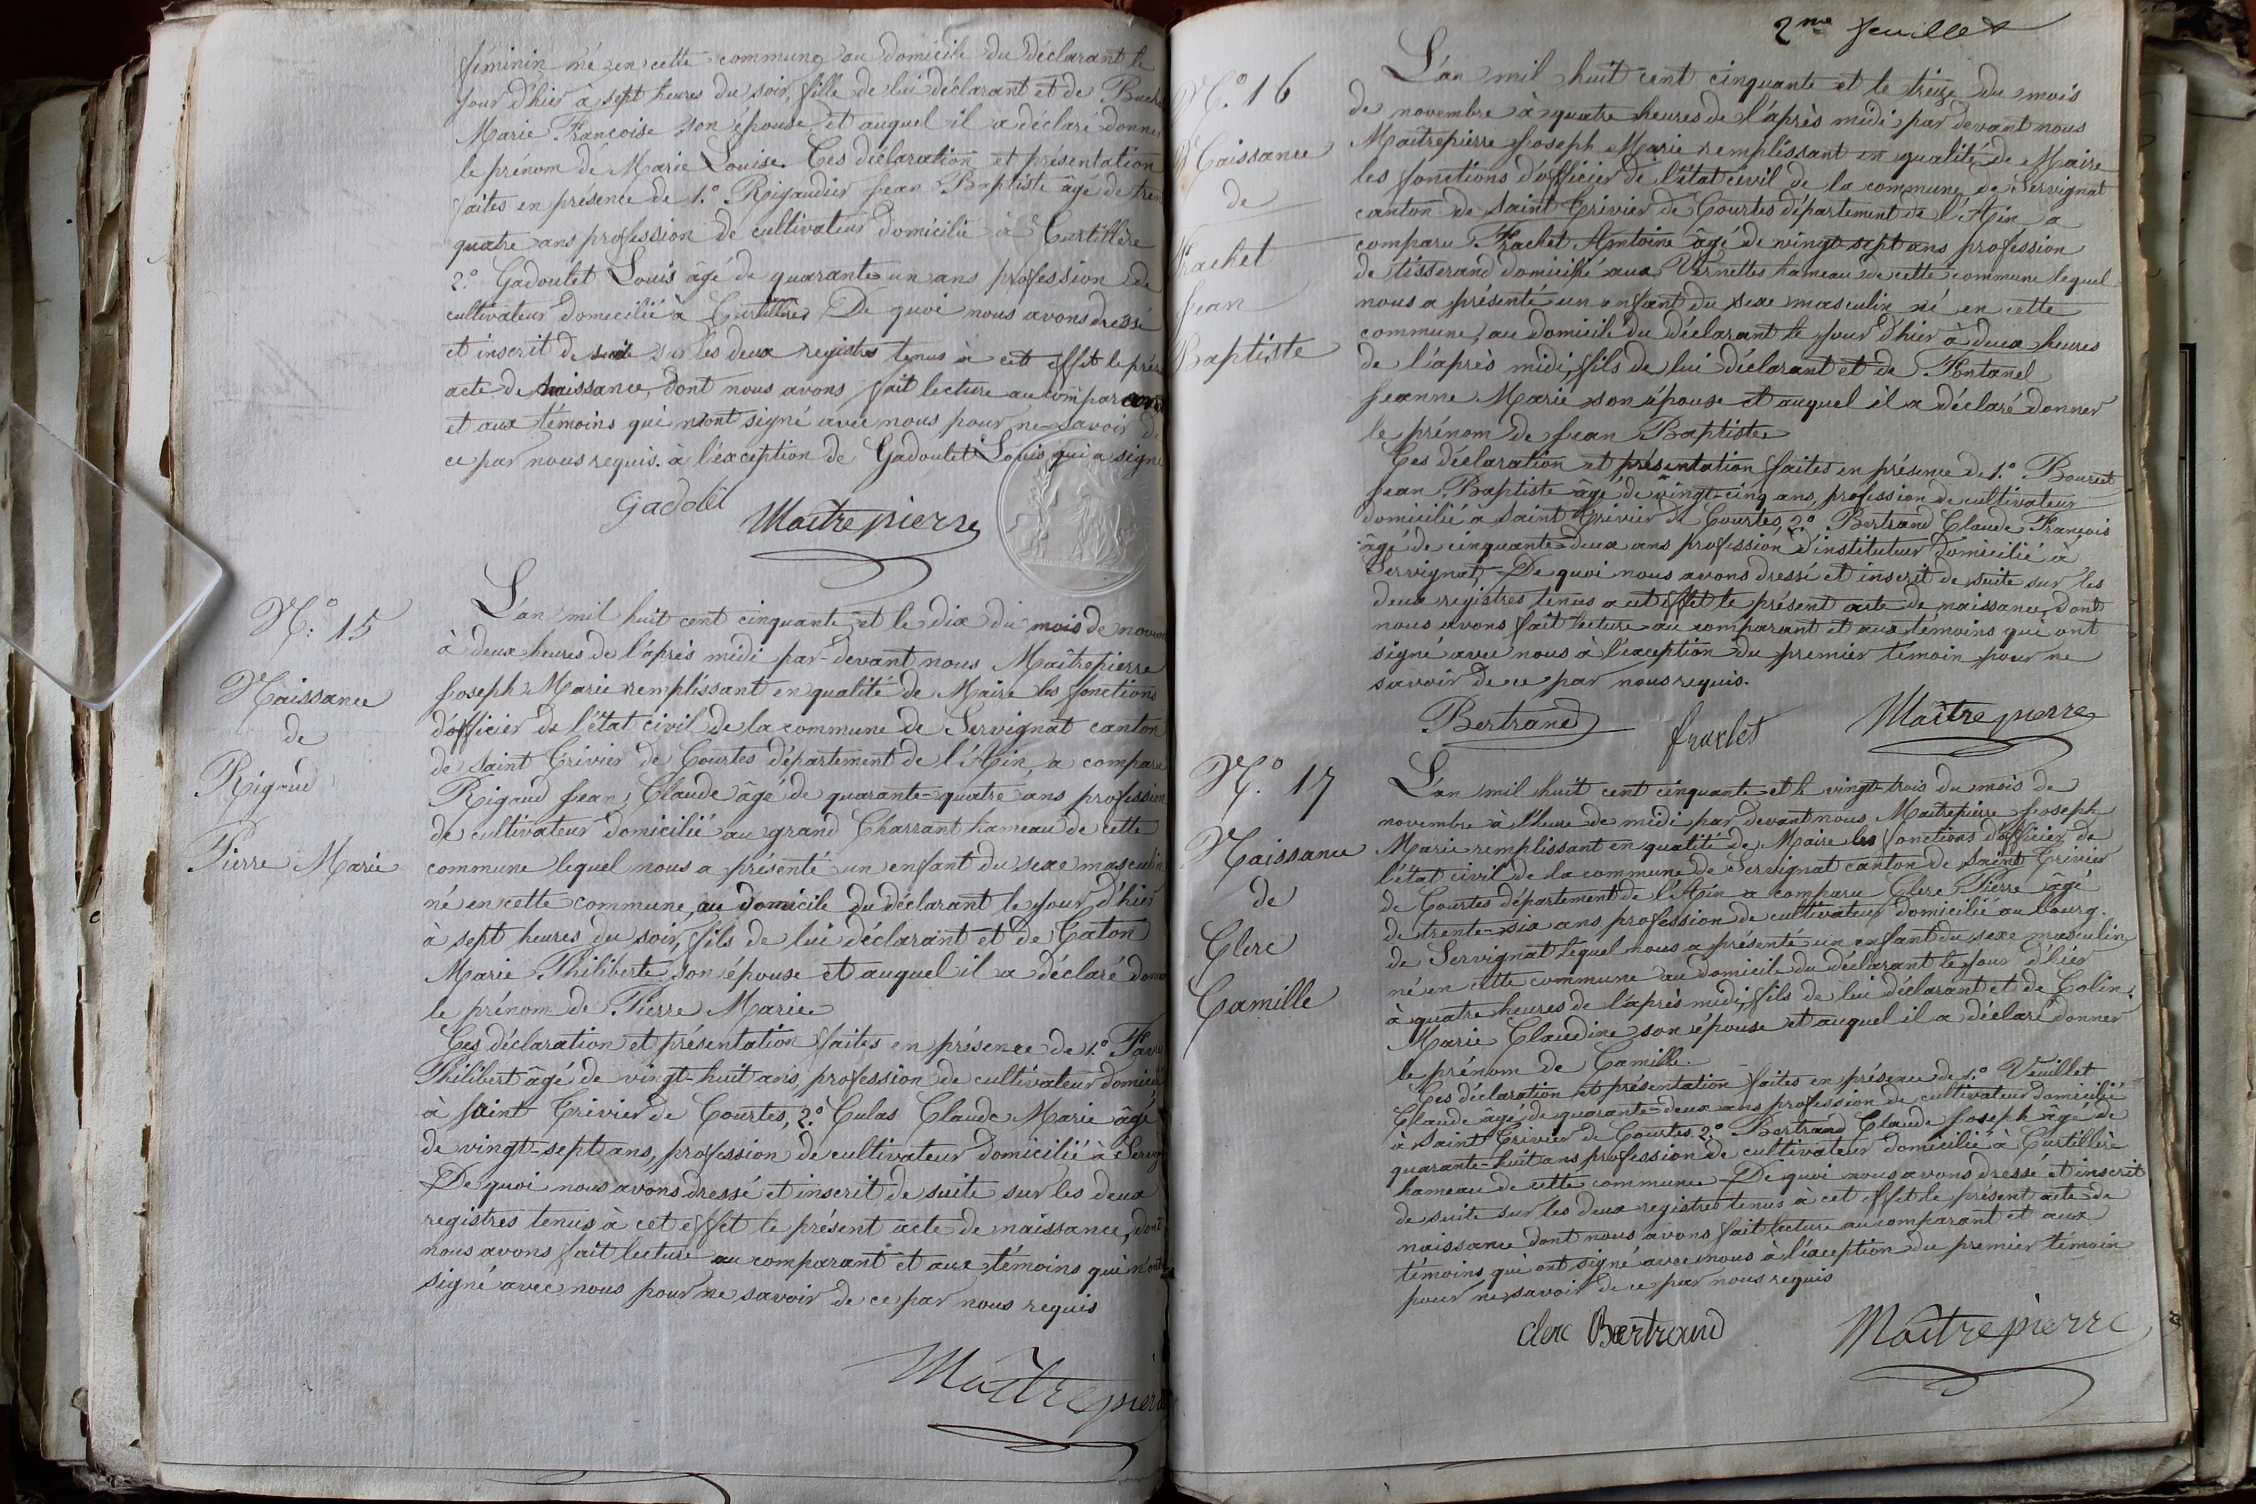 féminin né en cette commune au domicile du déclarant le
jour d'hier à sept heures du soir, fille de lui déclarant et de
Marie Françoise son épouse et auquel il a déclaré donner
le prénom de Marie Louise. Ces déclaration et présentation
faites en présence de 1.° Rigaudier Jean Baptiste âgé de tren
quatre ans profession de cultivateur domicilié à Curtillère
2.° Gadoulet Louis âgé de quarante un ans profession de
cultivateur domicilié à Curtillère De quoi nous avons dressé
et inscrit de suite sur les deux registres tenus à cet effet le prés
acte de naissance, dont nous avons fait lecture au comparant
et aux témoins qui n'ont signé avec nous pour ne savoir de
ce par nous requis. à l'exception de Gadoulet Louis qui a signé
Maitrepierre
N.° 15
Naissance
de
Rigaud
Pierre Marie
L'an mil huit cent cinquante et le dix du mois de novem
à deux heures de l'après midi par-devant nous Maitrepierre
Joseph Marie remplissant en qualité de Maire les fonctions
d'officier de l'état civil de la commune de Servignat canton
de Saint Trivier de Courtes département de l'Ain, a comparu
Rigaud Jean Claude âgé de quarante-quatre ans profession
de cultivateur domicilié au grand Charrant hameau de cette
commune lequel nous a présenté un enfant du sexe masculin
né en cette commune, au domicile du déclarant le jour d'hier
à sept heures du soir, fils de lui déclarant et de Caton
Marie Philiberte son épouse et auquel il a déclaré donner
le prénom de Pierre Marie
Ces déclaration et présentation faites en présence de 1.°
Philibert âgé de vingt-huit ans, profession de cultivateur domicilié
à Saint Trivier de Courtes, 2.° Culas Claude Marie âgé
de vingt-sept ans, profession de cultivateur domicilié à Servign
De quoi nous avons dressé et inscrit de suite sur les deux
registres tenus à cet effet le présent acte de naissance, dont
nous avons fait lecture au comparant et aux témoins qui n'ont
signé avec nous pour ne savoir de ce par nous requis
Maitrepierre
2me feuillet
N.° 16
Naissance
de
Frachet
Jean
Baptiste
L'an mil huit cent cinquante et le treize du mois
de novembre à quatre heures de l'après midi par devant nous
Maitrepierre Joseph Marie remplissant en qualité de Maire
les fonctions d'officier de l'état civil de la commune de Servignat
canton de Saint Trivier de Courtes département de l'Ain a
comparu Frachet Antoine âgé de vingt-sept ans profession
de tisserand domicilié aux Vernettes hameau de cette commune lequel
nous a présenté un enfant du sexe masculin né en cette
commune, au domicile du déclarant le jour d'hier à deux heures
de l'après midi, fils de lui déclarant et de Fontanel
Jeanne Marie son épouse et auquel il a déclaré donner
le prénom de Jean Baptiste
Ces déclaration et présentation faites en présence de 1.° Bourcet
Jean Baptiste âgé de vingt-cinq ans, profession de cultivateur
domicilié à Saint Trivier de Courtes, 2.° Bertrand Claude François
âgé de cinquante-deux ans profession d'instituteur domicilié à
Servignat, De quoi nous avons dressé et inscrit de suite sur les
deux registres tenus à cet effet le présent acte de naissance, dont
nous avons fait lecture au comparant et aux témoins qui ont
signé avec nous à l'exception du premier témoin pour ne
savoir de ce par nous requis.
Bertrand frachet Maitrepierre
N.° 17
Naissance
de
Clerc
Camille
L'an mil huit cent cinquante et le vingt-trois du mois de
novembre à l'heure de midi par devant nous Maitrepierre Joseph
Marie remplissant en qualité de Maire les fonctions d'officier de
l'état civil de la commune de Servignat canton de Saint Trivier
de Courtes département de l'Ain a comparu Clerc Pierre âgé
de trente-six ans profession de cultivateur domicilié au bourg
de Servignat lequel nous a présenté un enfant du sexe masculin
né en cette commune au domicile du déclarant le jour d'hier
à quatre heures de l'après midi, fils de lui déclarant et de Colin
Marie Claudine son épouse et auquel il a déclaré donner
le prénom de Camille.
Ces déclaration et présentation faites en présence de 1.° Veuillet
Claude âgé de quarante-deux ans profession de cultivateur domicilié
à Saint Trivier de Courtes 2.° Bertrand Claude Joseph âgé de
quarante-huit ans profession de cultivateur domicilié à Curtillère
hameau de cette commune De quoi nous avons dressé et inscrit
de suite sur les deux registres tenus à cet effet le présent acte de
naissance dont nous avons fait lecture au comparant et aux
témoins qui ont signé avec nous à l'exception du premier témoin
pour ne savoir de ce par nous requis
clerc Bertrand Maitrepierre